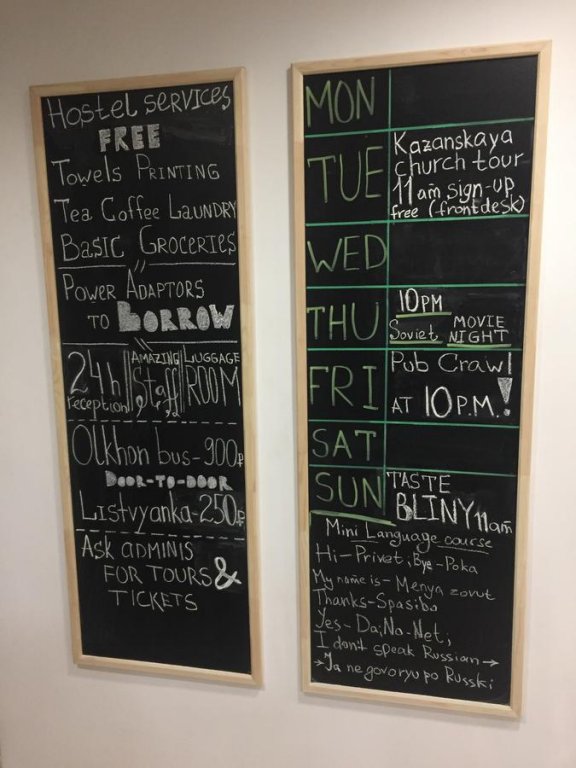 Hostel services
FREE
Towels Printing
Tea Coffee Laundry
Basic Groceries
Power Adaptors
to Borrow
24h reception
Amazing Staff
Luggage ROOM
Olkhon bus-900₽
DOOR-TO-DOOR
Listvyanka-250₽
Ask adminis
FOR TOURS &
TICKETS
MON
TUE
Kazanskaya
church tour
11am sign-up
free (frontdesk)
WED
THU
10PM
Soviet MOVIE NIGHT
FRI
Pub Crawl
AT 10P.M.!
SAT
SUN
TASTE
BLINY 11am
Mini Language course
Hi-Privet; Bye-Poka
My name is-Menya zovut
Thanks-Spasibo
Yes-Da; No-Net;
I don't speak Russian→
→Ja ne govoryu po Russki